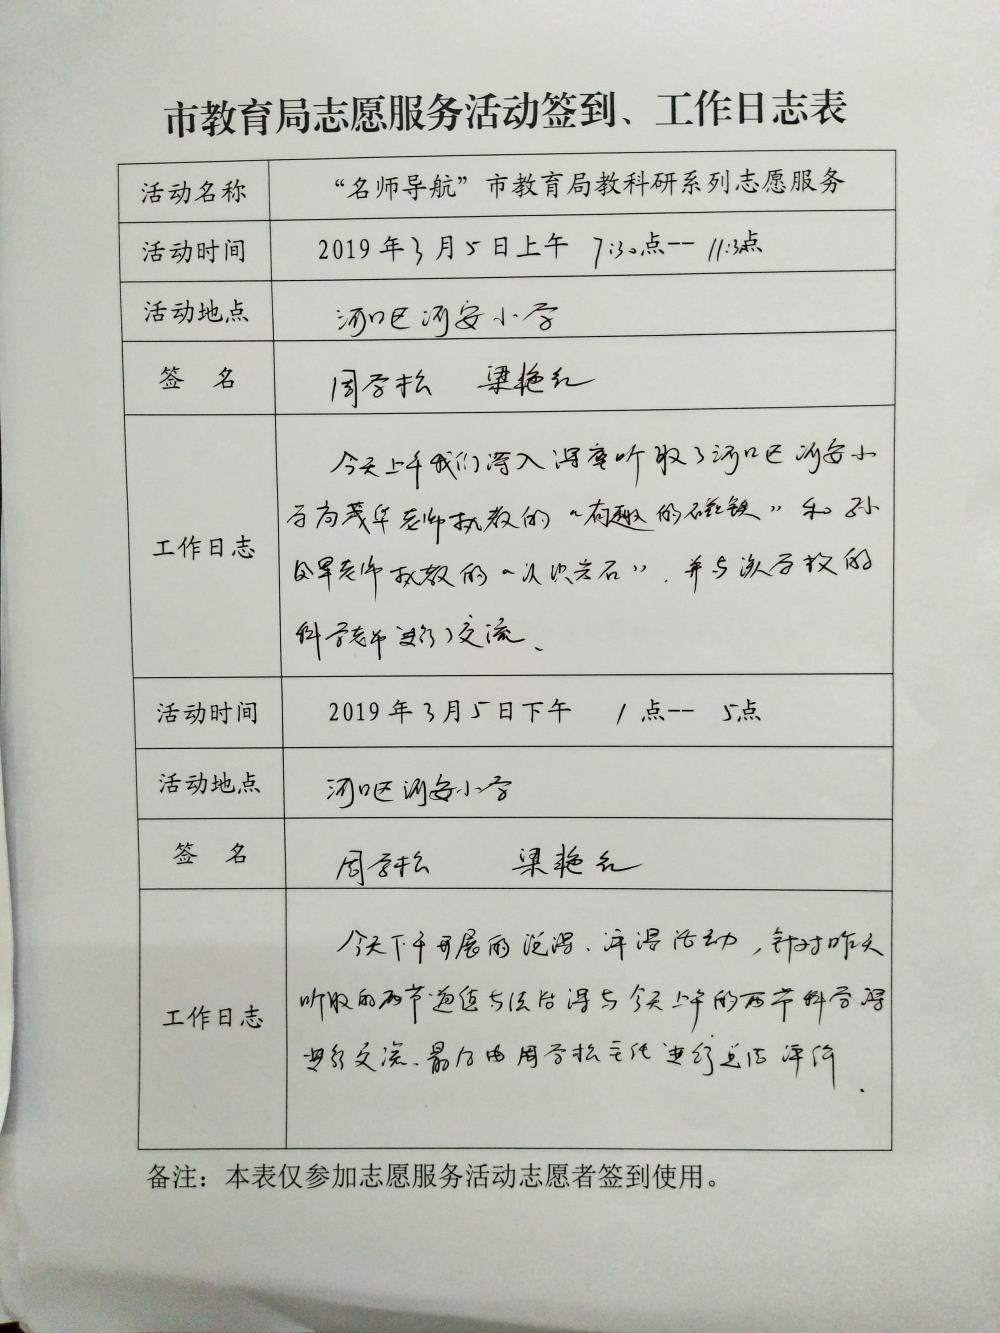 市教育局志愿服务活动签到、工作日志表
活动名称 “名师导航”市教育局教科研系列志愿服务
活动时间 2019年3月5日上午 7:30点-- 11:30点
活动地点 河口区河安小学
签 名 周学松 梁艳红
工作日志
今天上午我们深入课堂听取了河口区河安小
学尚茂华老师执教的“有趣的磁铁”和孙
老师执教的“认识岩石”，并与该学校的
科学老师进行了交流、
活动时间 2019年3月5日下午 1点-- 5点
活动地点 河口区河安小学
签 名 周学松 梁艳红
工作日志
今天下午开展的说课、评课活动，针对昨天
听取的两节道德与法治课与今天上午的两节科学课
进行交流、最后由周学松主任进行总结评价.
备注：本表仅参加志愿服务活动志愿者签到使用。